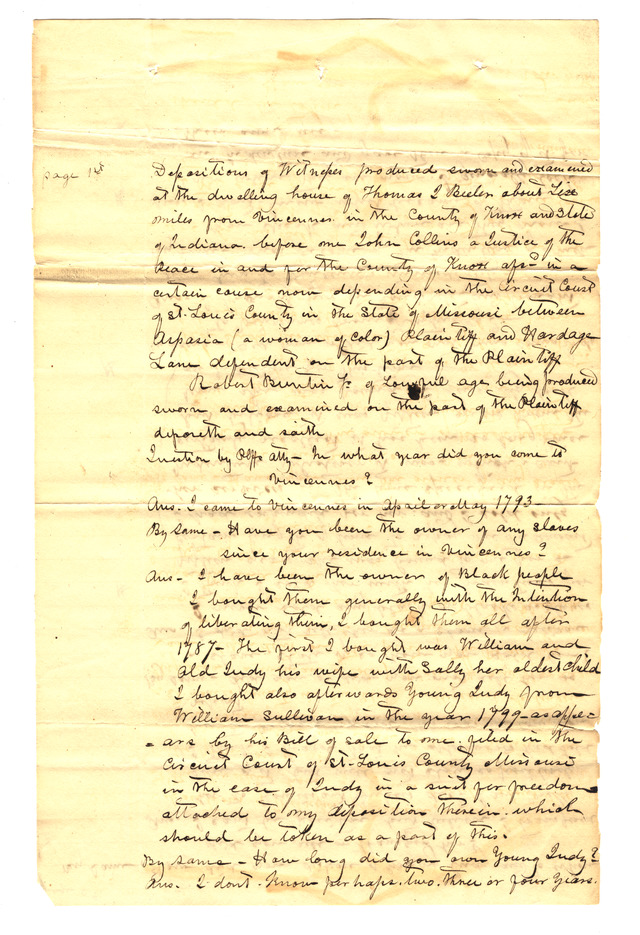 page 1st
Depositions of Witness produced, sworn and examined
at the dwelling house of Thomas J Beeler about Six
miles from Vincennes. in the County of Knox and State
of Indiana. before me John Collins a Justice of the
Peace in and for the County of Knox afsd in a
certain cause now depending in the Circuit Court
of St. Louis County in the State of Missouri between
Aspasia (a woman of color) Plaintiff and Hardage
Lane defendent on the part of the Plaintiff
Robert Buntin Sr of Lawful age being produced
sworn and examined on the part of the Plaintiff
deposeth and saith
Question by Plffs atty - In what year did you come to
Vincennes?
Ans. I came to Vincennes in April or May 1793 -
By Same - Have you been the owner of any slaves
since your residence in Vincennes?
Ans - I have been the owner of Black people
I bought them generally with the Intention
of liberating them, I bought them all after
1787 - The first I bought was William and
Old Judy his wife with Sally her oldest Child
I bought also afterwards Young Judy from
William Sullivan in the year 1799 - as appe-
- ars by his Bill of Sale to me. filed in the
Circuit Court of St. Louis County Missouri
in the case of Judy in a suit for freedom
attached to my deposition therein. which
should be taken as a part of this.
By same - How long did you own Young Judy?
Ans. I dont. Know perhaps. two. three or four years.